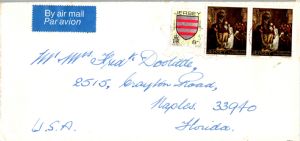 By air mail
Par avion
JERSEY
Mr Mrs Fred Doolittle,
2515, Crayton Road,
Naples 33940
U.S.A. Florida.